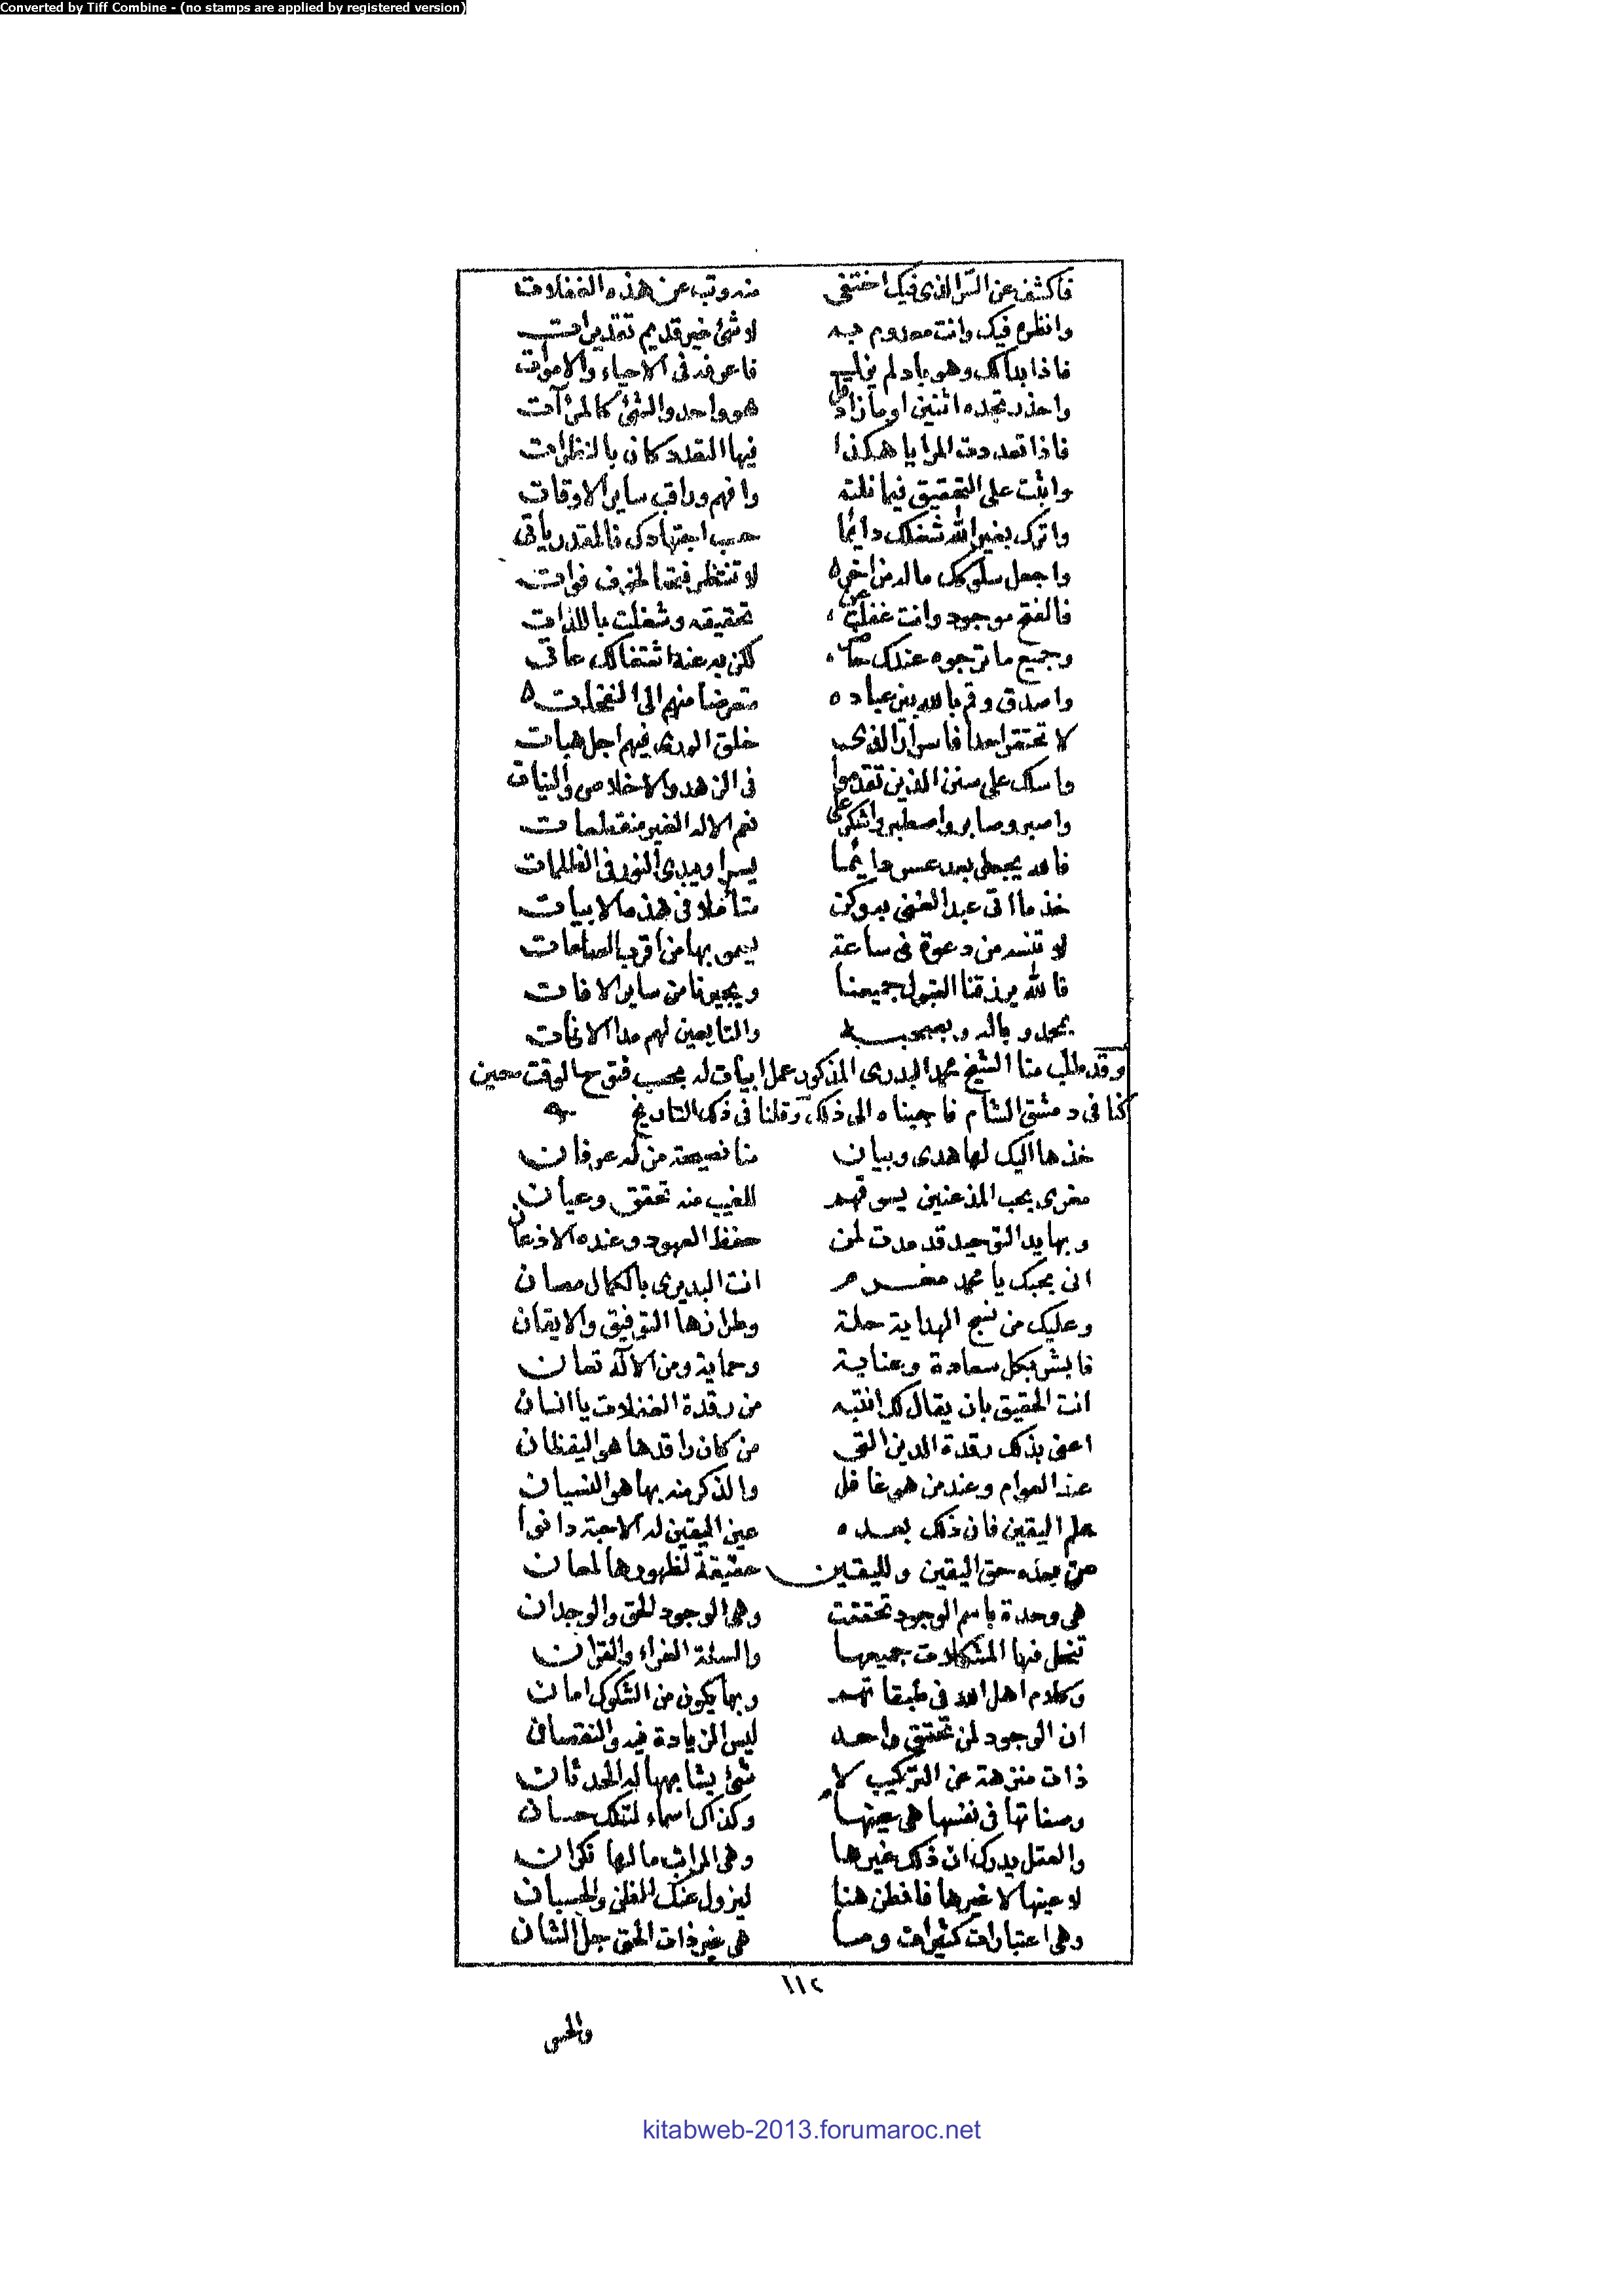 Converted by Tiff Combine - (no stamps are applied by registered version)
فاكشف عن السّر الذى فيك اختفى منه وتب عن هذه الغفلات
وانظره فيك وانت معدوم به لا شئ غير قديم تقديرات
فاذا بدا لك وهو باد لم يغب فاعرفه فى الاحياء والاموات
واحذر تجده اثنين او ما زاد هو واحد والشئ كالمرآت
فاذا تعددت المرايا هكذا فيها التعدد كان بالنظرات
واثبت على التحقيق فيما قلته وافهم وراقب ساير الاوقات
واترك بغير الله شغلك دايما حسب اجتهادك فالمقدر ياتى
واجعل سلوكك ماله من اخره لا تنتظر فتحا لخوف فوات
فالفتح موجود وانت غفلت عن تحقيقه وشغلت باللذات
وجميع ما ترجوه عندك لكن به عنه اشتغالك عاتى
واصدق وقم بالله بين عباده متعرضا منهم الى النفحات
لا تحتقر احدا فاسرار الذى خلق الورى فيهم اجل هبات
واسلك على سنن الذين تقدموا فى الزهد والاخلاص والنيات
واصبر وصابر واصطبر واشكر على نعم الاله الغير منقطعات
فالله يجعل بعد عسر دايما يسرا ويبدى النور فى الظلمات
خذ ما اتى عبد الغنى به وكن متأملا فى هذه الابيات
لا تنسه من دعوة فى ساعة يسمو بها من اقرب الساعات
فالله يرزقنا القبول جميعنا ويجيرنا من ساير الافات
بمحمد وبآله وبصحبه والتابعين لهم مدا الانات
وقد طلب منا الشيخ محمد البديرى المذكور عمل ابيات له بحسب فتوح الوقت حين
كنا فى دمشق الشام فاجبناه الى ذلك وقلنا فى ذلك التاريخ
خذها اليك لها هدى وبيان منا نصيحة من له عرفان
مغرى بحب المذعنين يسوقهم للغيب منه تحقق وعيان
وبها يد التوحيد قد مدت لمن حفظ العهود وعنده الاذعان
انى بحبك يا محمد مغرم انت البديرى بالكمال مصان
وعليك من نسج الهداية حلة وطرازها التوفيق والايقان
فابشر بكل سعادة وعناية وحماية ومن الآله تعان
انت الحقيق بان يقال لك انتبه من رقدة الغفلات يا انسان
اعنى بذلك رقدة الدين التى من كان راقدها هو اليقظان
عند العوام وعند من هو غافل والذكر منه بها هو النسيان
علم اليقين فان ذلك بعده عين اليقين له الاحبة دانوا
من بعده حق اليقين ولليقين حقيقة لظهورها لمعان
هى وحدة باسم الوجود تحققت وهى الوجود الحق والوجدان
تنحل فيها المشكلات جميعها والسنة الغراء والقرآن
وكلام اهل الله فى طبقاتهم وبها يكون من الشكوك امان
ان الوجود لمن تحقق واحد ليس الزيادة فيه والنقصان
ذات منزهة عن التركيب لا شئ يشابهها له الحدثان
وصفاتها فى نفسها هى عينها وكذاك اسماء لتلك حسان
والعقل يدرك ان ذلك غيرها وهى المراتب ما لها نكران
لا عينها لا غيرها فافطن هنا ليزول عنك الظن والحسبان
وهى اعتبارات كثيرات وما هى غير ذات الحق جل الشان
١١٢
والحس
kitabweb-2013.forumaroc.net